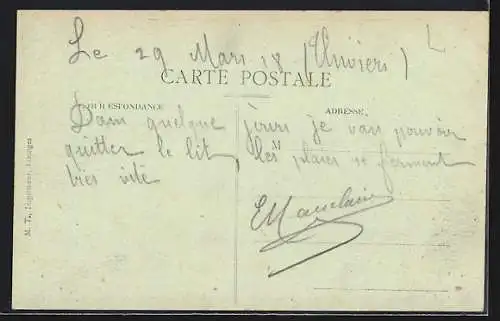 Le 29 Mars 18 (Thiviers)
CARTE POSTALE
CORRESPONDANCE
ADRESSE
Dans quelque jours je vais pouvoir
M
quitter le lit les plaies se ferment
très vite
M. T., Limoges